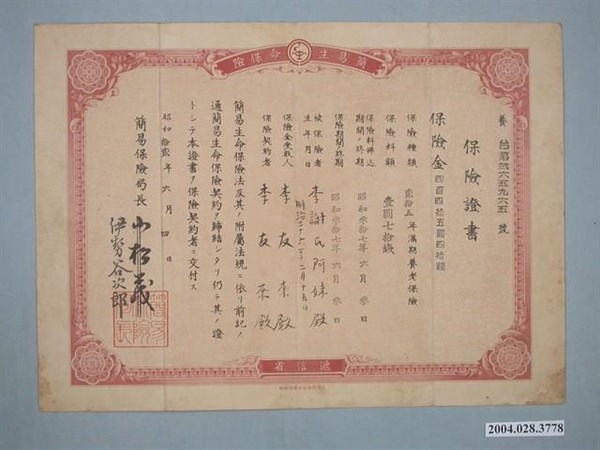 簡易生命保險
養 台第弐六五九六五 號
保險證書
保險金 四百四拾五圓四拾錢
保險種類 貳拾五年滿期養老保險
保險料額 壹圓七拾錢
保險料拂込期間ノ終期 昭和參拾七年六月參日
保險期間ノ終期 昭和參拾七年六月參日
被保險者 李謝氏阿妹殿
生年月日
保險金受取人 李友來殿
保險契約者 李友來殿
簡易生命保險法及其ノ附屬法規ニ依リ前記ノ
通簡易生命保險契約ヲ締結シタリ仍テ其ノ證
トシテ本證書ヲ保險契約者ニ交付ス
昭和拾貳年六月四日
簡易保險局長
小松茂
伊勢谷次郎
遞信省
2004.028.3778